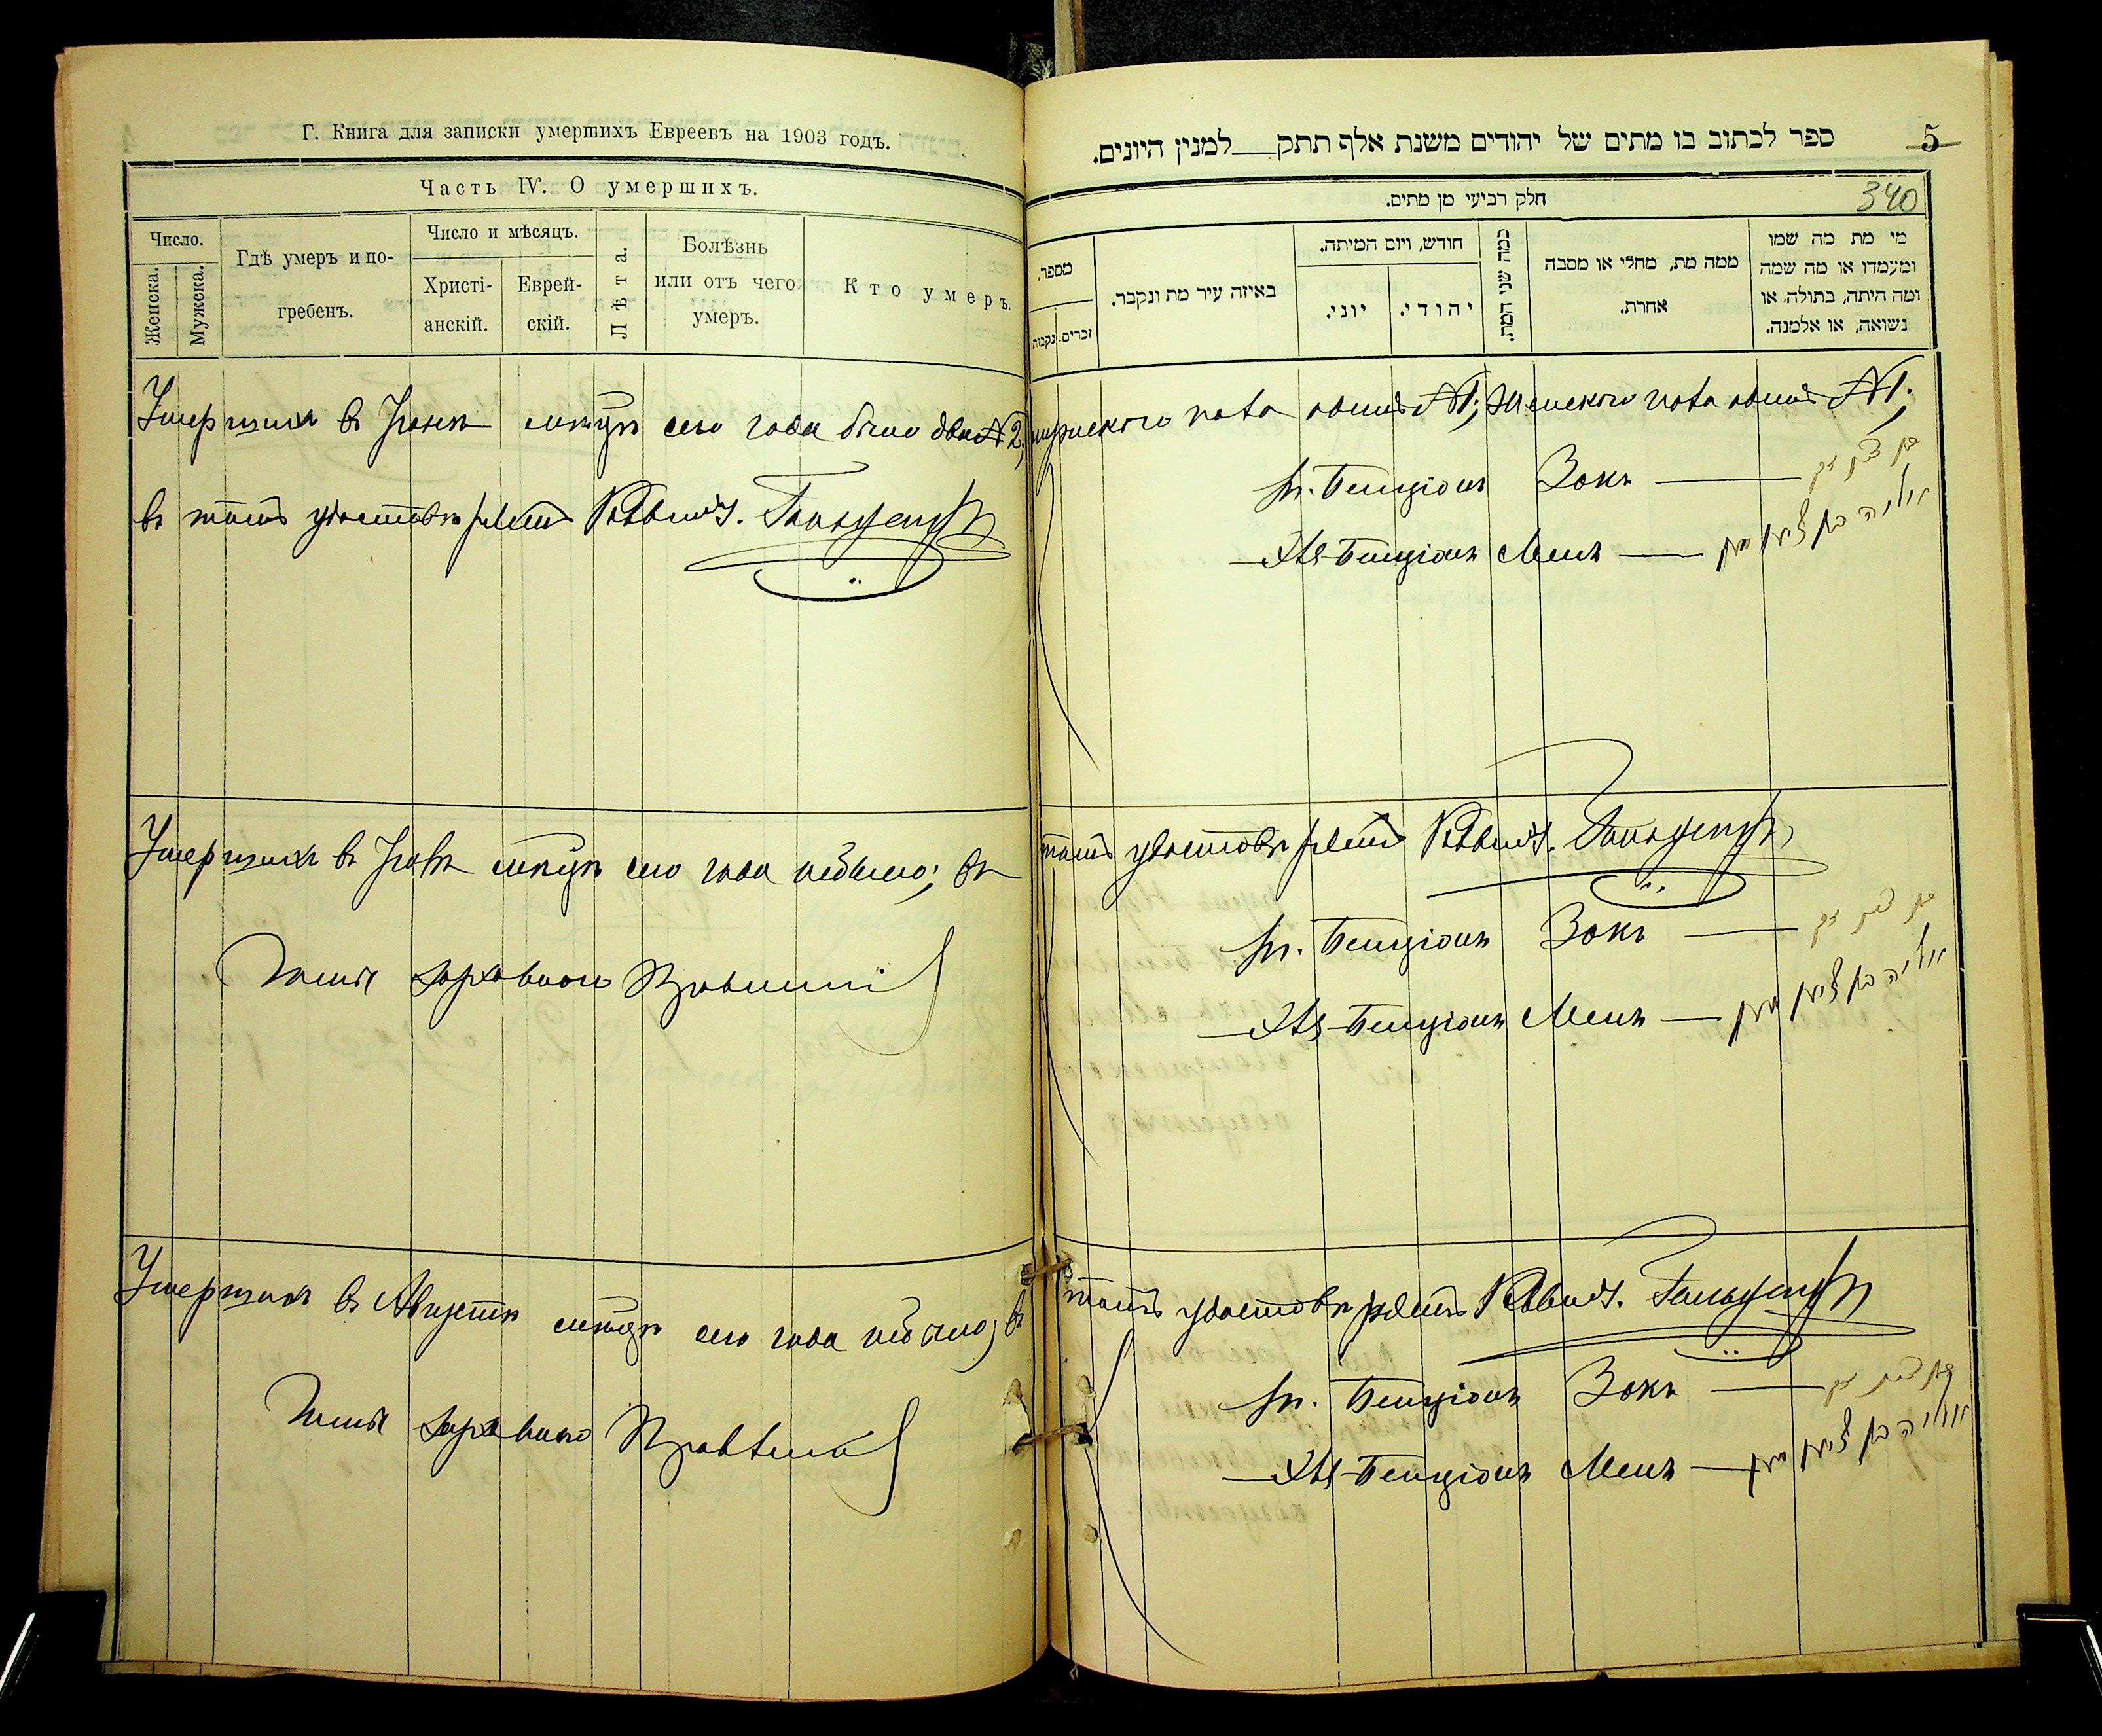 Г. Книга для записки умершихъ Евреевъ на 1903 годъ.
Часть IV. О умершихъ.
Число.
Женска.
Мужска.
Гдѣ умеръ и по-
гребенъ.
Число и мѣсяцъ.
Христі-
анскій.
Еврей-
скій.
Лѣта.
Болѣзнь
или отъ чего
умеръ.
Кто умеръ.
Умершихъ въ Іюнѣ мѣсяцѣ сего года было два № 2,
въ томъ удостовѣряемъ Раввинъ.
Умершихъ въ Іюлѣ мѣсяцѣ сего года небыло; въ
Члены Духовнаго Правленія
Умершихъ въ Августѣ мѣсяцѣ сего года небыло; въ
Члены Духовнаго Правленія
5
ספר לכתוב בו מתים של יהודים משנת אלף תתק למנין היונים.
340
חלק רביעי מן מתים.
מספר.
זכרים.
נקבות
באיזה עיר מת ונקבר.
חודש, ויום המיתה.
יוני.
יהודי.
כמה שני המת.
ממה מת, מחלי או מסבה
אחרת.
מי מת מה שמו
ומעמדו או מה שמה
ומה היתה, בתולה, או
נשואה, או אלמנה.
мужского пола одинъ № 1; женского пола одинъ № 1;
Бенціонъ Закъ
Бенціонъ Менъ
томъ удостовѣряемъ Раввинъ.
Бенціонъ Закъ
Бенціонъ Менъ
томъ удостовѣряемъ Раввинъ.
Бенціонъ Закъ
Бенціонъ Менъ